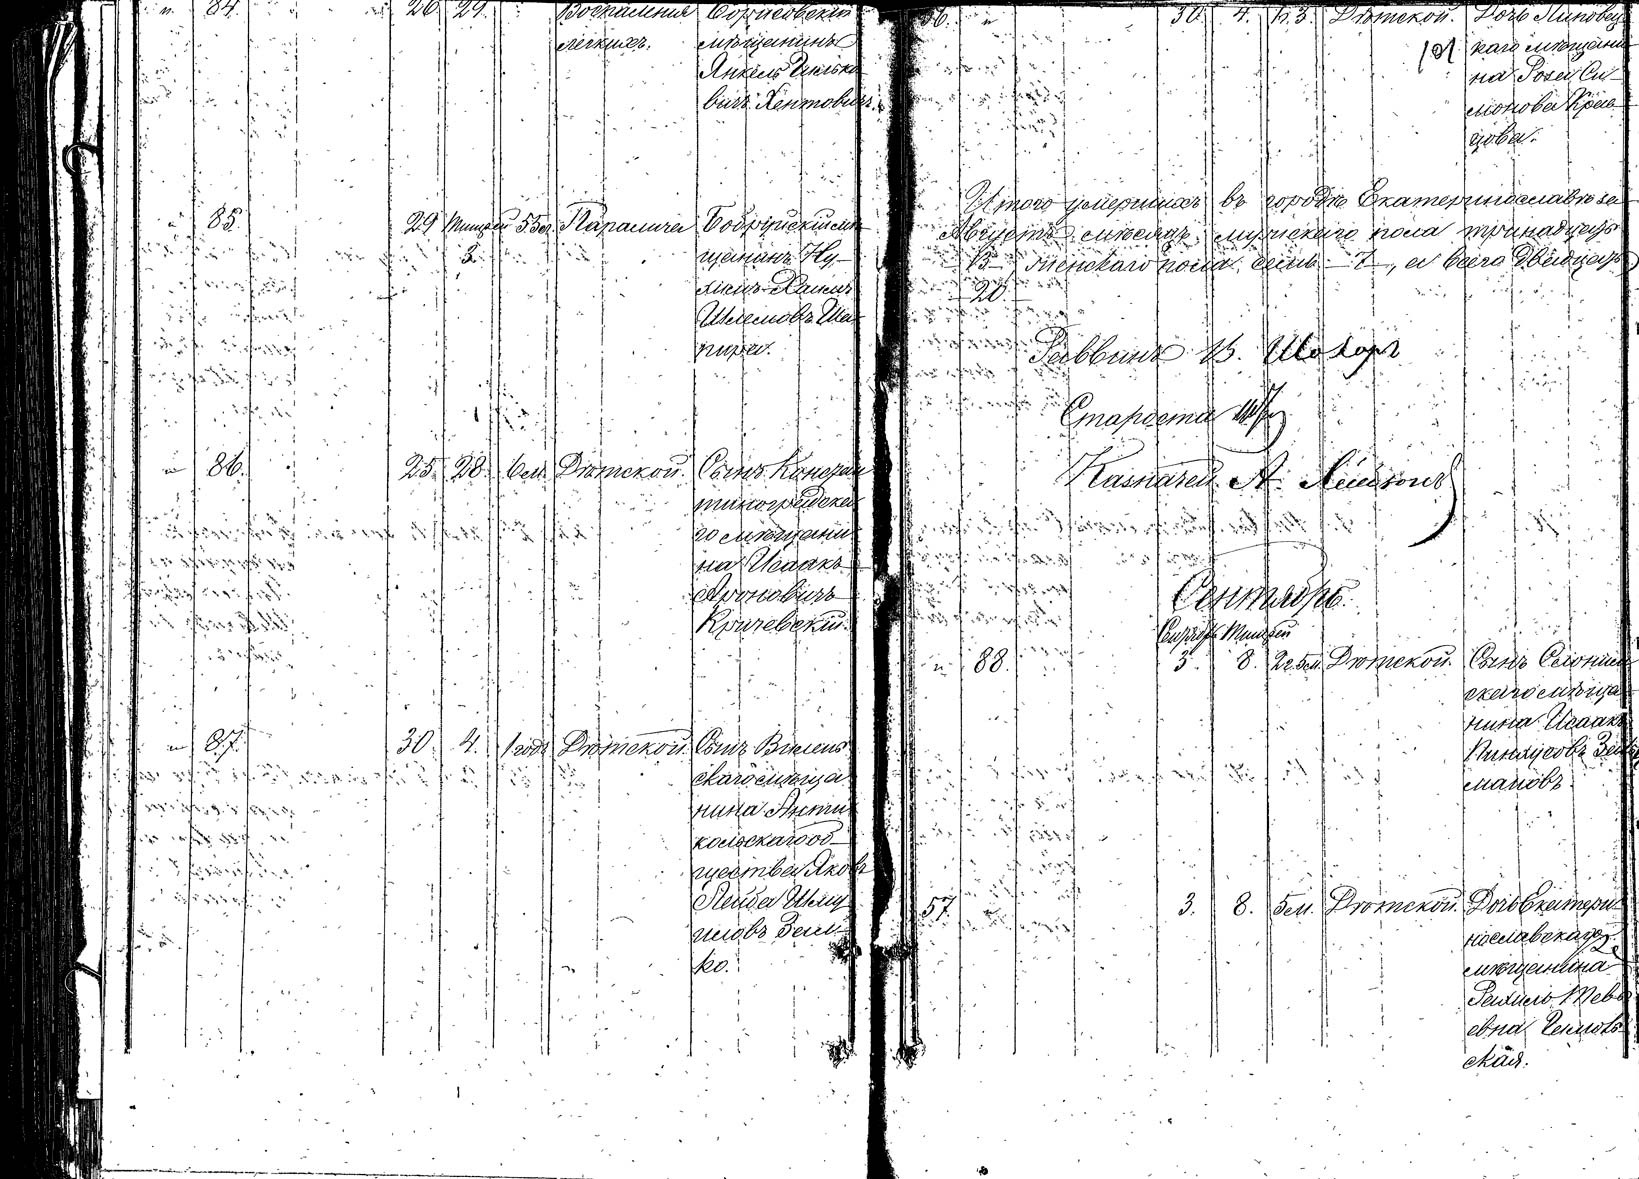 84. 26 29. Воспаления Борисовскій
легкихъ. мѣщанинъ
Янкель
вичъ Хентовичъ.
85. 29 Тишрей 55 л. Паралича Бобруйскій мѣ-
3. щанинъ Ну-
химъ-Хаимъ
Шлемовъ Ша-
пиро.
86. 25. 28. 6 м. Дѣтской. Сынъ Констан-
тиноградска-
го мѣщани-
на Исаакъ
Ароновичъ
Кричевскій.
87. 30 4. 1 годъ Дѣтской. Сынъ Вилен-
скаго мѣща-
нина Анто-
кольскаго об-
щества Яковъ
Лейба Шму-
иловъ Зель-
ко.
56. 30 4. Дѣтской. Дочь Липовец-
101 каго мѣщани-
на Роза Си-
монова Крав-
цова.
Итого умершихъ въ городѣ Екатеринославѣ за
Августъ мѣсяцъ мужскаго пола тринадцать
13, женскаго пола семь 7, а всего двадцать
20
Раввинъ В. Шохоръ
Староста
Казначей А.
Сентябрь.
Сентябрь Тишрей
88. 3. 8. 2 г. 5 м. Дѣтской. Сынъ Слоним-
скаго мѣща-
нина Исаакъ
Пинхусовъ Зель-
мановъ.
57. 3. 8. 5 м. Дѣтской. Дочь Екатери-
нославскаго
мѣщанина
Рахиль Тевь-
евна
ская.